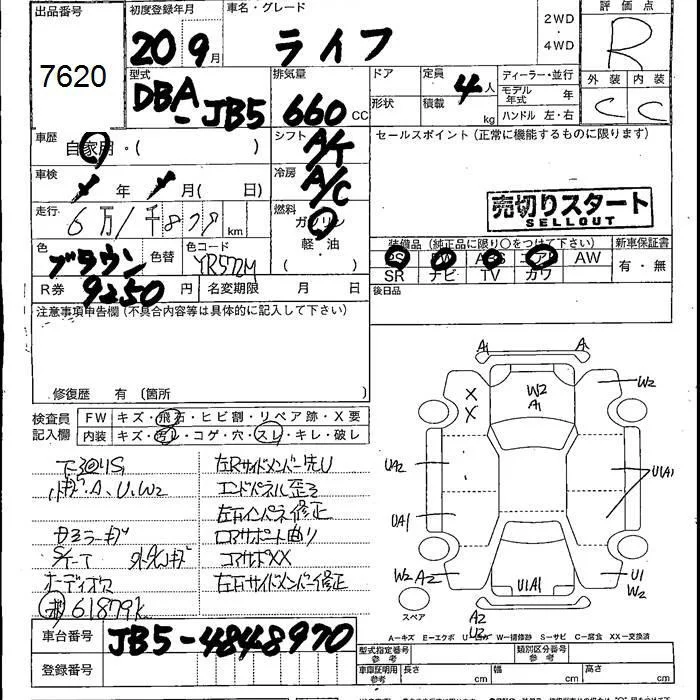 出品番号
7620
初度登録年月
20 9月
車名・グレード
ライフ
2WD
・
4WD
評価点
R
外装 内装
C C
型式
DBA-JB5
排気量
660 CC
ドア
形状
定員
4人
積載
kg
ディーラー・並行
モデル年式 年
ハンドル 左・右
車歴
自家用・( )
シフト
A/T
セールスポイント(正常に機能するものに限ります)
車検
年 月( 日)
冷房
A/C
売切りスタート
SELLOUT
走行
km
燃料
ガソリン
軽・油
( )
色
ブラウン
色替
色コード
YR572M
装備品(純正品に限り○をつけて下さい)
PS PW ABS エアB AW
SR ナビ TV カワ
新車保証書
有・無
R券
9250円
名変期限 月 日
後日品
注意事項申告欄(不具合内容等は具体的に記入して下さい)
修復歴 有〔箇所 〕
検査員
記入欄
FW キズ・飛石・ヒビ割・リペア跡・X要
内装 キズ・汚レ・コゲ・穴・スレ・キレ・破レ
下回りS
小キズ・A、U、W2
左Rサイドメンバー先U
エンドパネル歪ミ
左右インパネ修正
ロアサポート曲り
コアサポXX
オーディオ欠
左右サイドメンバー修正
61879k
A1 A1
W2
A1
W2
X
X
UA2
UA1
U(A1)
W2 A2
U1A1
U1
W2
スペア
A2
U2
A―キズ E―エクボ U―凹 W―補修跡 S―サビ C―腐食 XX―交換済
車台番号
JB5-4848970
登録番号
型式指定番号
参考
類別区分番号
参考
車庫証明用
参考
長さ cm
幅 cm
高さ cm